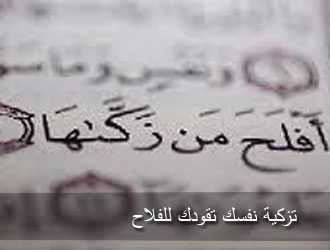 وَنَفْسٍ وَمَا سَو
أَفْلَحَ مَن زَكَّىٰهَا
تزكية نفسك تقودك للفلاح